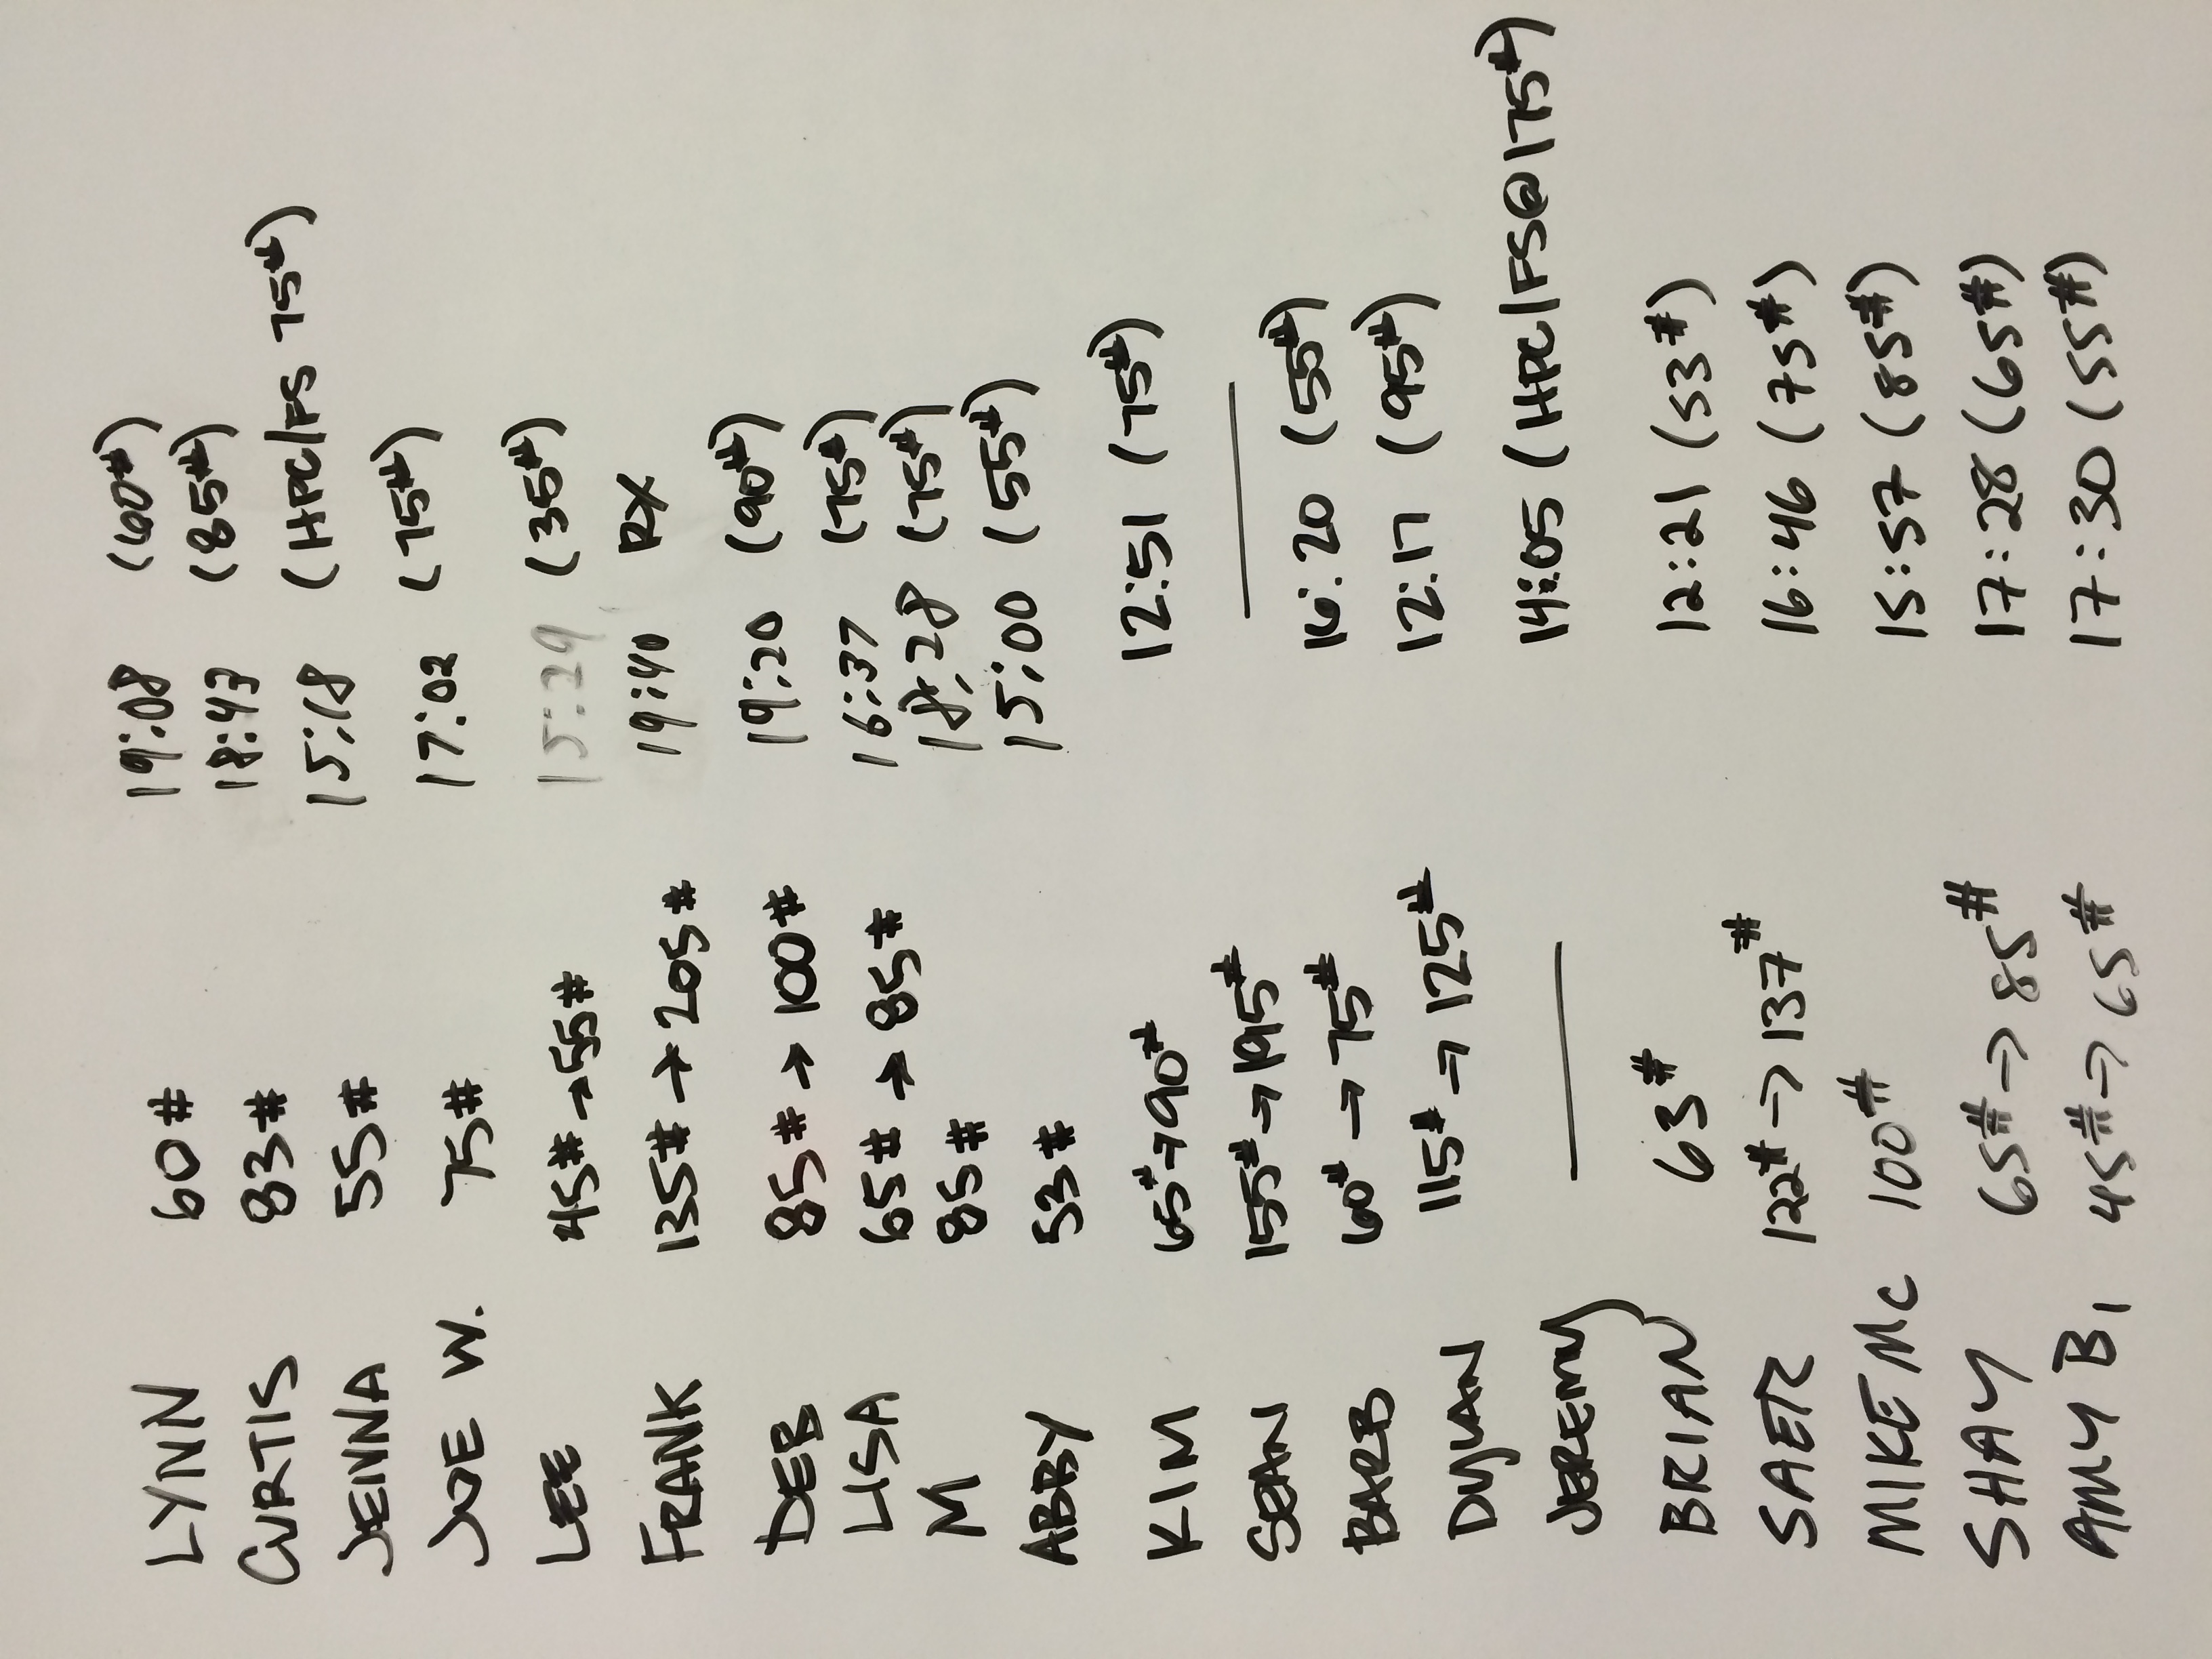 LYNN 60# 19:08 (60#)
CURTIS 83# 18:43 (85#)
JENNA 55# 15:18 (HPC/FS 75#)
JOE W. 75# 17:02 (75#)
LEE 45# → 55# 15:29 (35#)
FRANK 135# → 205# 19:40 RX
DEB 85# → 100# 19:20 (90#)
LISA 65# → 85# 16:37 (75#)
M 85# 18:28 (75#)
ABBY 53# 15:00 (55#)
KIM 65# → 90# 12:51 (75#)
SEAN 155# → 195# —
BARB 60# → 75# 16:20 (55#)
DUAN 115# → 125# 12:17 (95#)
JEREMY — 14:05 (HPC/FS@175#)
BRIAN 63# 12:21 (53#)
SAER 122# → 137# 16:46 (75#)
MIKE Mc 100# 15:57 (85#)
SHAY 65# → 85# 17:28 (65#)
AMY B 45# → 65# 17:30 (55#)